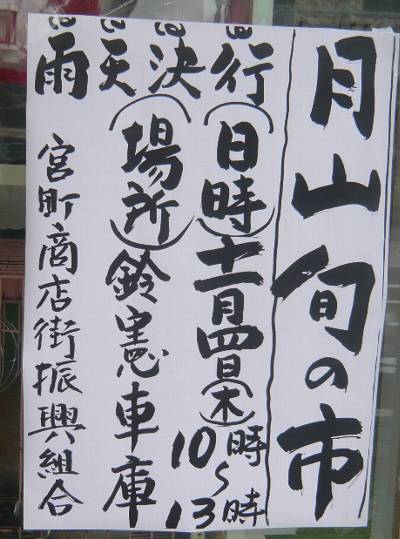 月山旬の市
雨天決行
(日時)十一月四日(木)
10時～13時
(場所)鈴憲車庫
宮町商店街振興組合